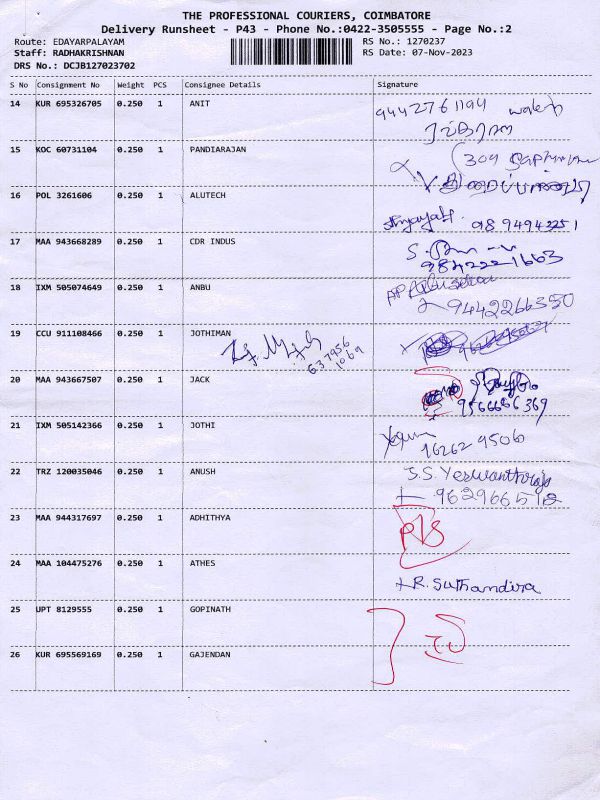 THE PROFESSIONAL COURIERS, COIMBATORE
Delivery Runsheet - P43 - Phone No.:0422-3505555 - Page No.:2
Route: EDAYARPALAYAM RS No.: 1270237
Staff: RADHAKRISHNAN RS Date: 07-Nov-2023
DRS No.: DCJB127023702
S No Consignment No Weight PCS Consignee Details Signature
14 KUR 695326705 0.250 1 ANIT
15 KOC 60731104 0.250 1 PANDIARAJAN
16 POL 3261606 0.250 1 ALUTECH
17 MAA 943668289 0.250 1 CDR INDUS
9842221663
18 IXM 505074649 0.250 1 ANBU
9442266350
19 CCU 911108466 0.250 1 JOTHIMAN
637956
1069
20 MAA 943667507 0.250 1 JACK
9566686369
21 IXM 505142366 0.250 1 JOTHI
16262 9506
22 TRZ 120035046 0.250 1 ANUSH S.S. Yeswanthraja
23 MAA 944317697 0.250 1 ADHITHYA
24 MAA 104475276 0.250 1 ATHES R. Suthandira
25 UPT 8129555 0.250 1 GOPINATH
26 KUR 695569169 0.250 1 GAJENDAN